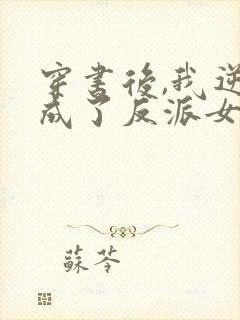 穿書後,我逆
成了反派女
蘇苓